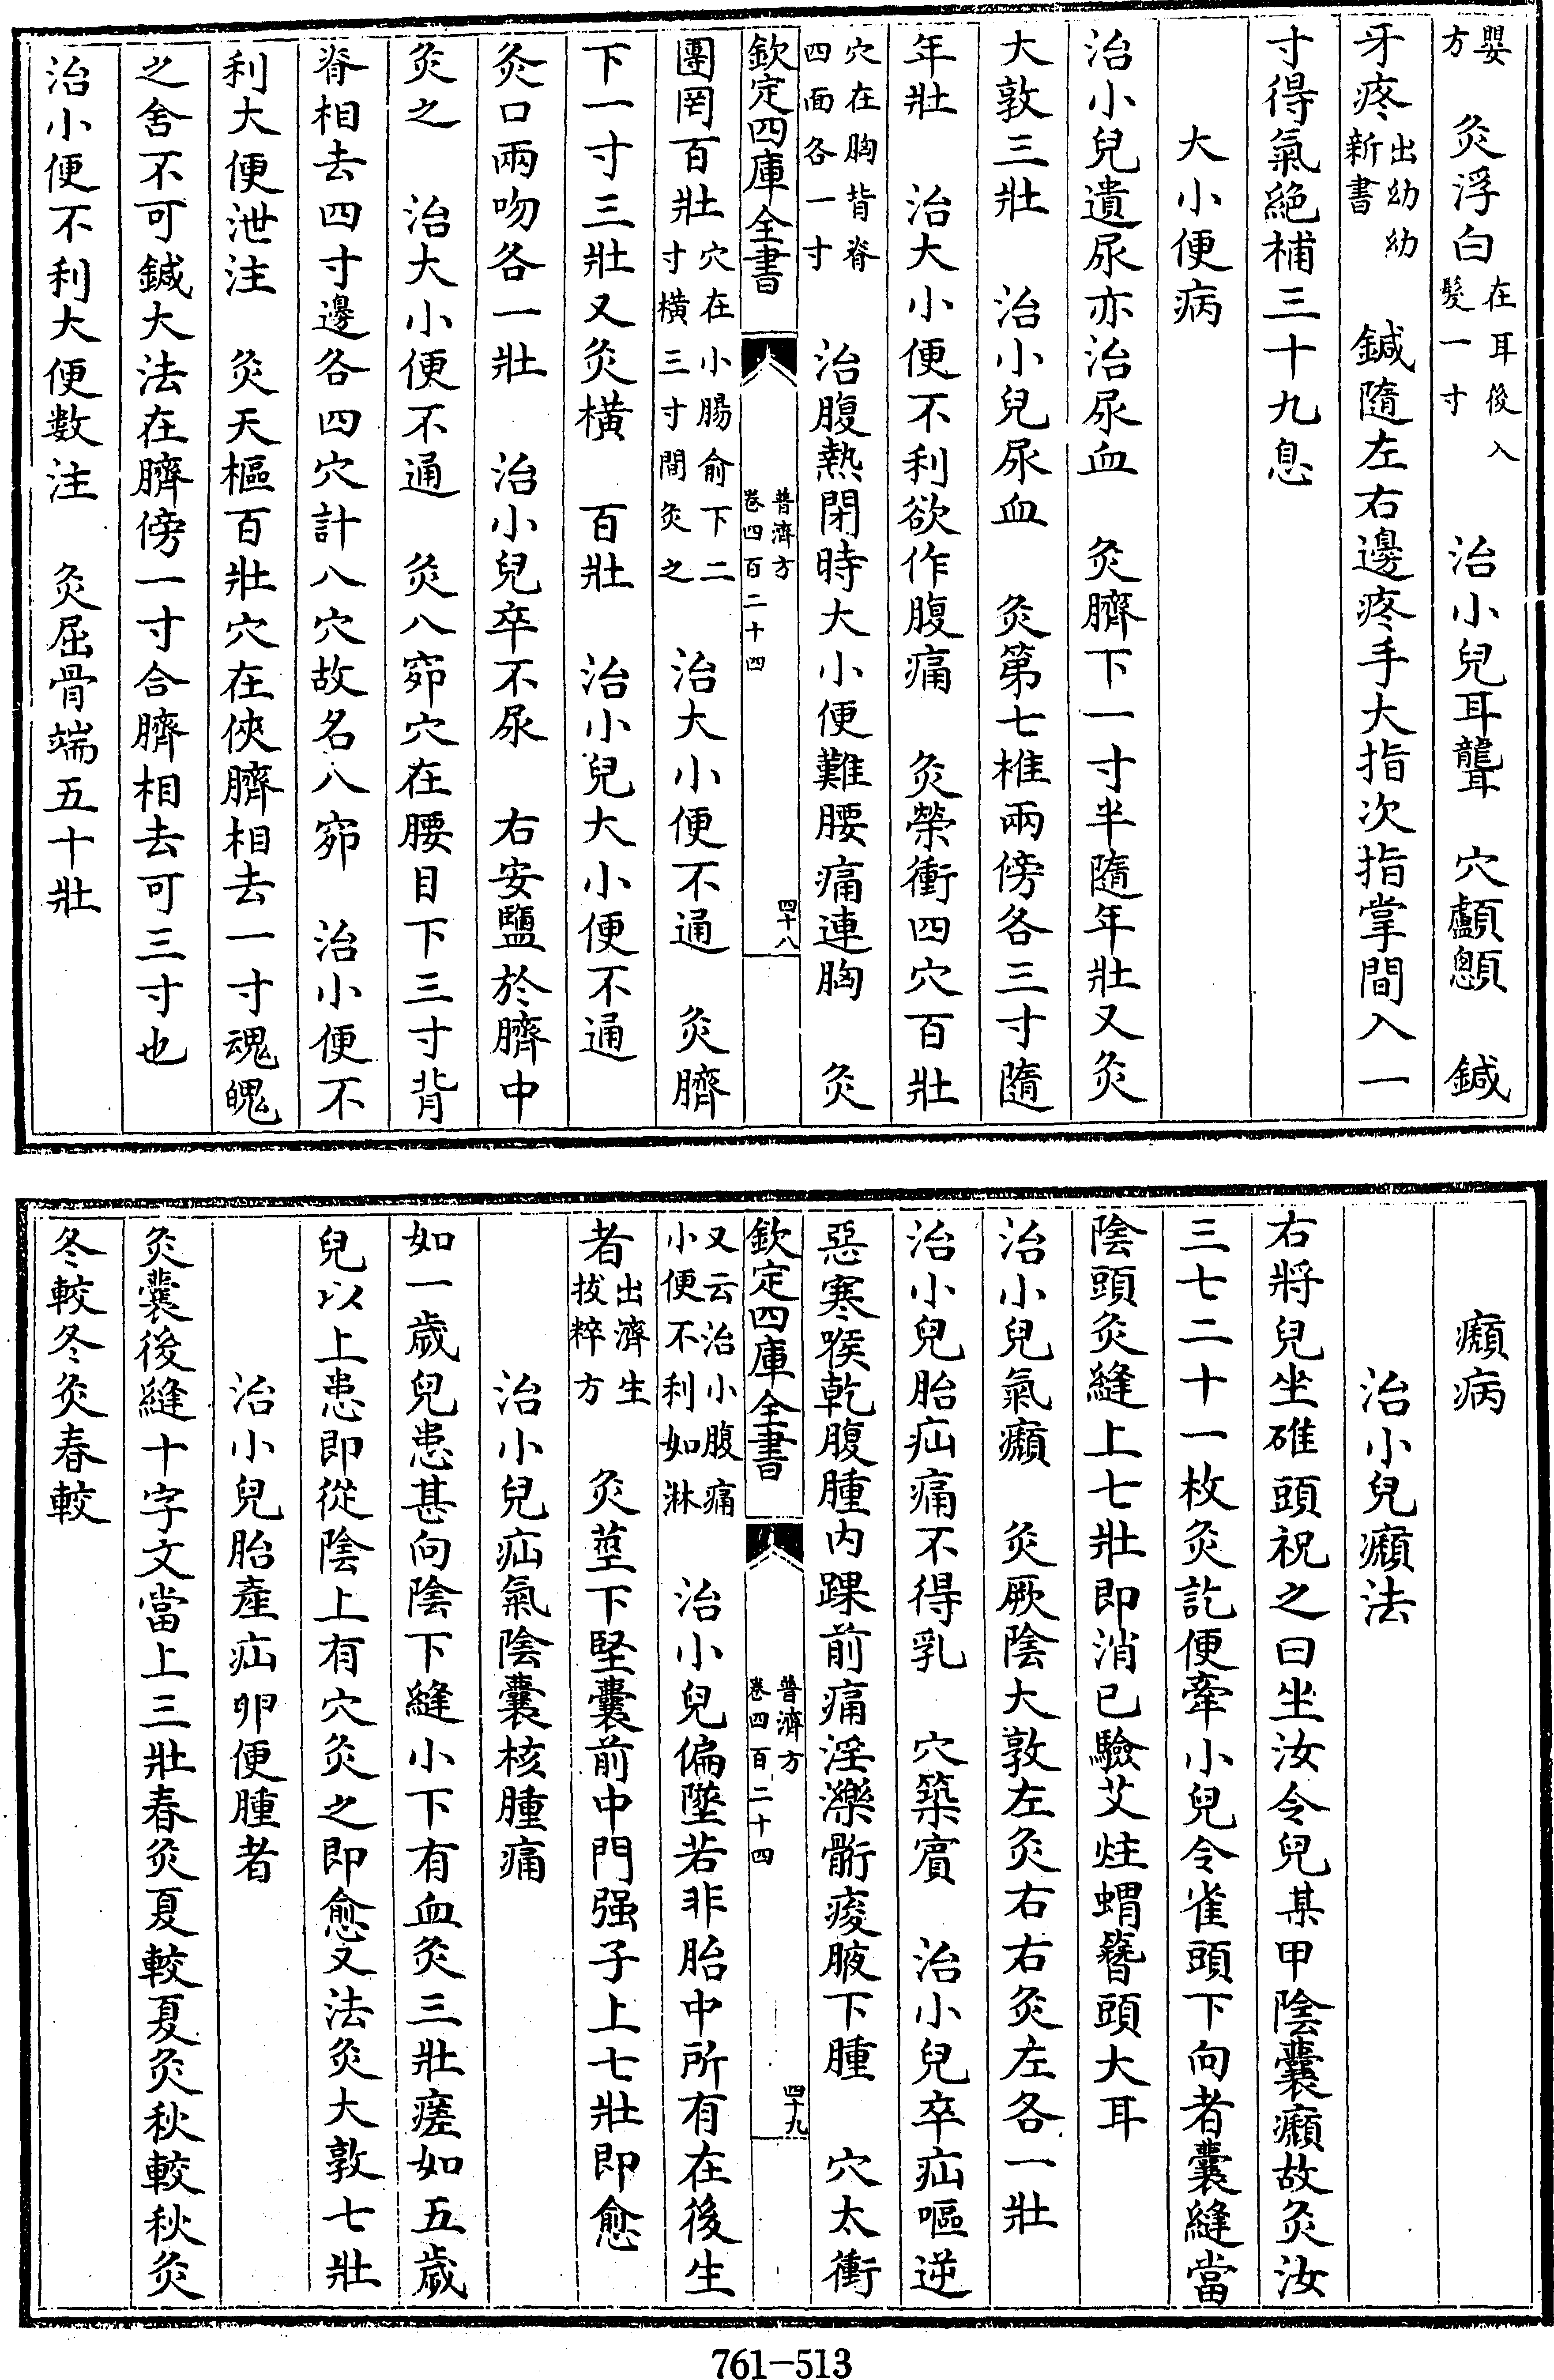 嬰方　灸浮白在耳後入髮一寸　治小兒耳聾　穴顱顖　鍼
牙疼出幼幼新書　鍼隨左右邊疼手大指次指掌間入一
寸得氣絕補三十九息
大小便病
治小兒遺尿亦治尿血　灸臍下一寸半隨年壯又灸
大敦三壯　治小兒尿血　灸第七椎兩傍各三寸隨
年壯　治大小便不利欲作腹痛　灸榮衝四穴百壯
穴在胸背脊四面各一寸　治腹熱閉時大小便難腰痛連胸　灸
欽定四庫全書　普濟方卷四百二十四　四十八
團罔百壯穴在小腸俞下二寸橫三寸間灸之　治大小便不通　灸臍
下一寸三壯又灸橫　百壯　治小兒大小便不通
灸口兩吻各一壯　治小兒卒不尿　右安鹽於臍中
灸之　治大小便不通　灸八窌穴在腰目下三寸背
脊相去四寸邊各四穴計八穴故名八窌　治小便不
利大便泄注　灸天樞百壯穴在俠臍相去一寸魂魄
之舍不可鍼大法在臍傍一寸合臍相去可三寸也
治小便不利大便数注　灸屈骨端五十壯
癩病
治小兒癩法
右將兒坐碓頭祝之曰坐汝令兒某甲陰囊癩故灸汝
三七二十一枚灸訖便牽小兒令雀頭下向者囊縫當
陰頭灸縫上七壯即消已驗艾炷蝟簪頭大耳
治小兒氣癩　灸厥陰大敦左灸右右灸左各一壯
治小兒胎疝痛不得乳　穴築賓　治小兒卒疝嘔逆
惡寒喉乾腹腫内踝前痛淫濼䯒痠腋下腫　穴太衝
欽定四庫全書　普濟方卷四百二十四　四十九
又云治小腹痛小便不利如淋　治小兒偏墜若非胎中所有在後生
者出濟生拔粹方　灸莖下堅囊前中門强子上七壯即愈
治小兒疝氣陰囊核腫痛
如一歲兒患甚向陰下縫小下有血灸三壯瘥如五歲
兒以上患即從陰上有穴灸之即愈又法灸大敦七壯
治小兒胎産疝卵便腫者
灸囊後縫十字文當上三壯春灸夏較夏灸秋較秋灸
冬較冬灸春較
761-513